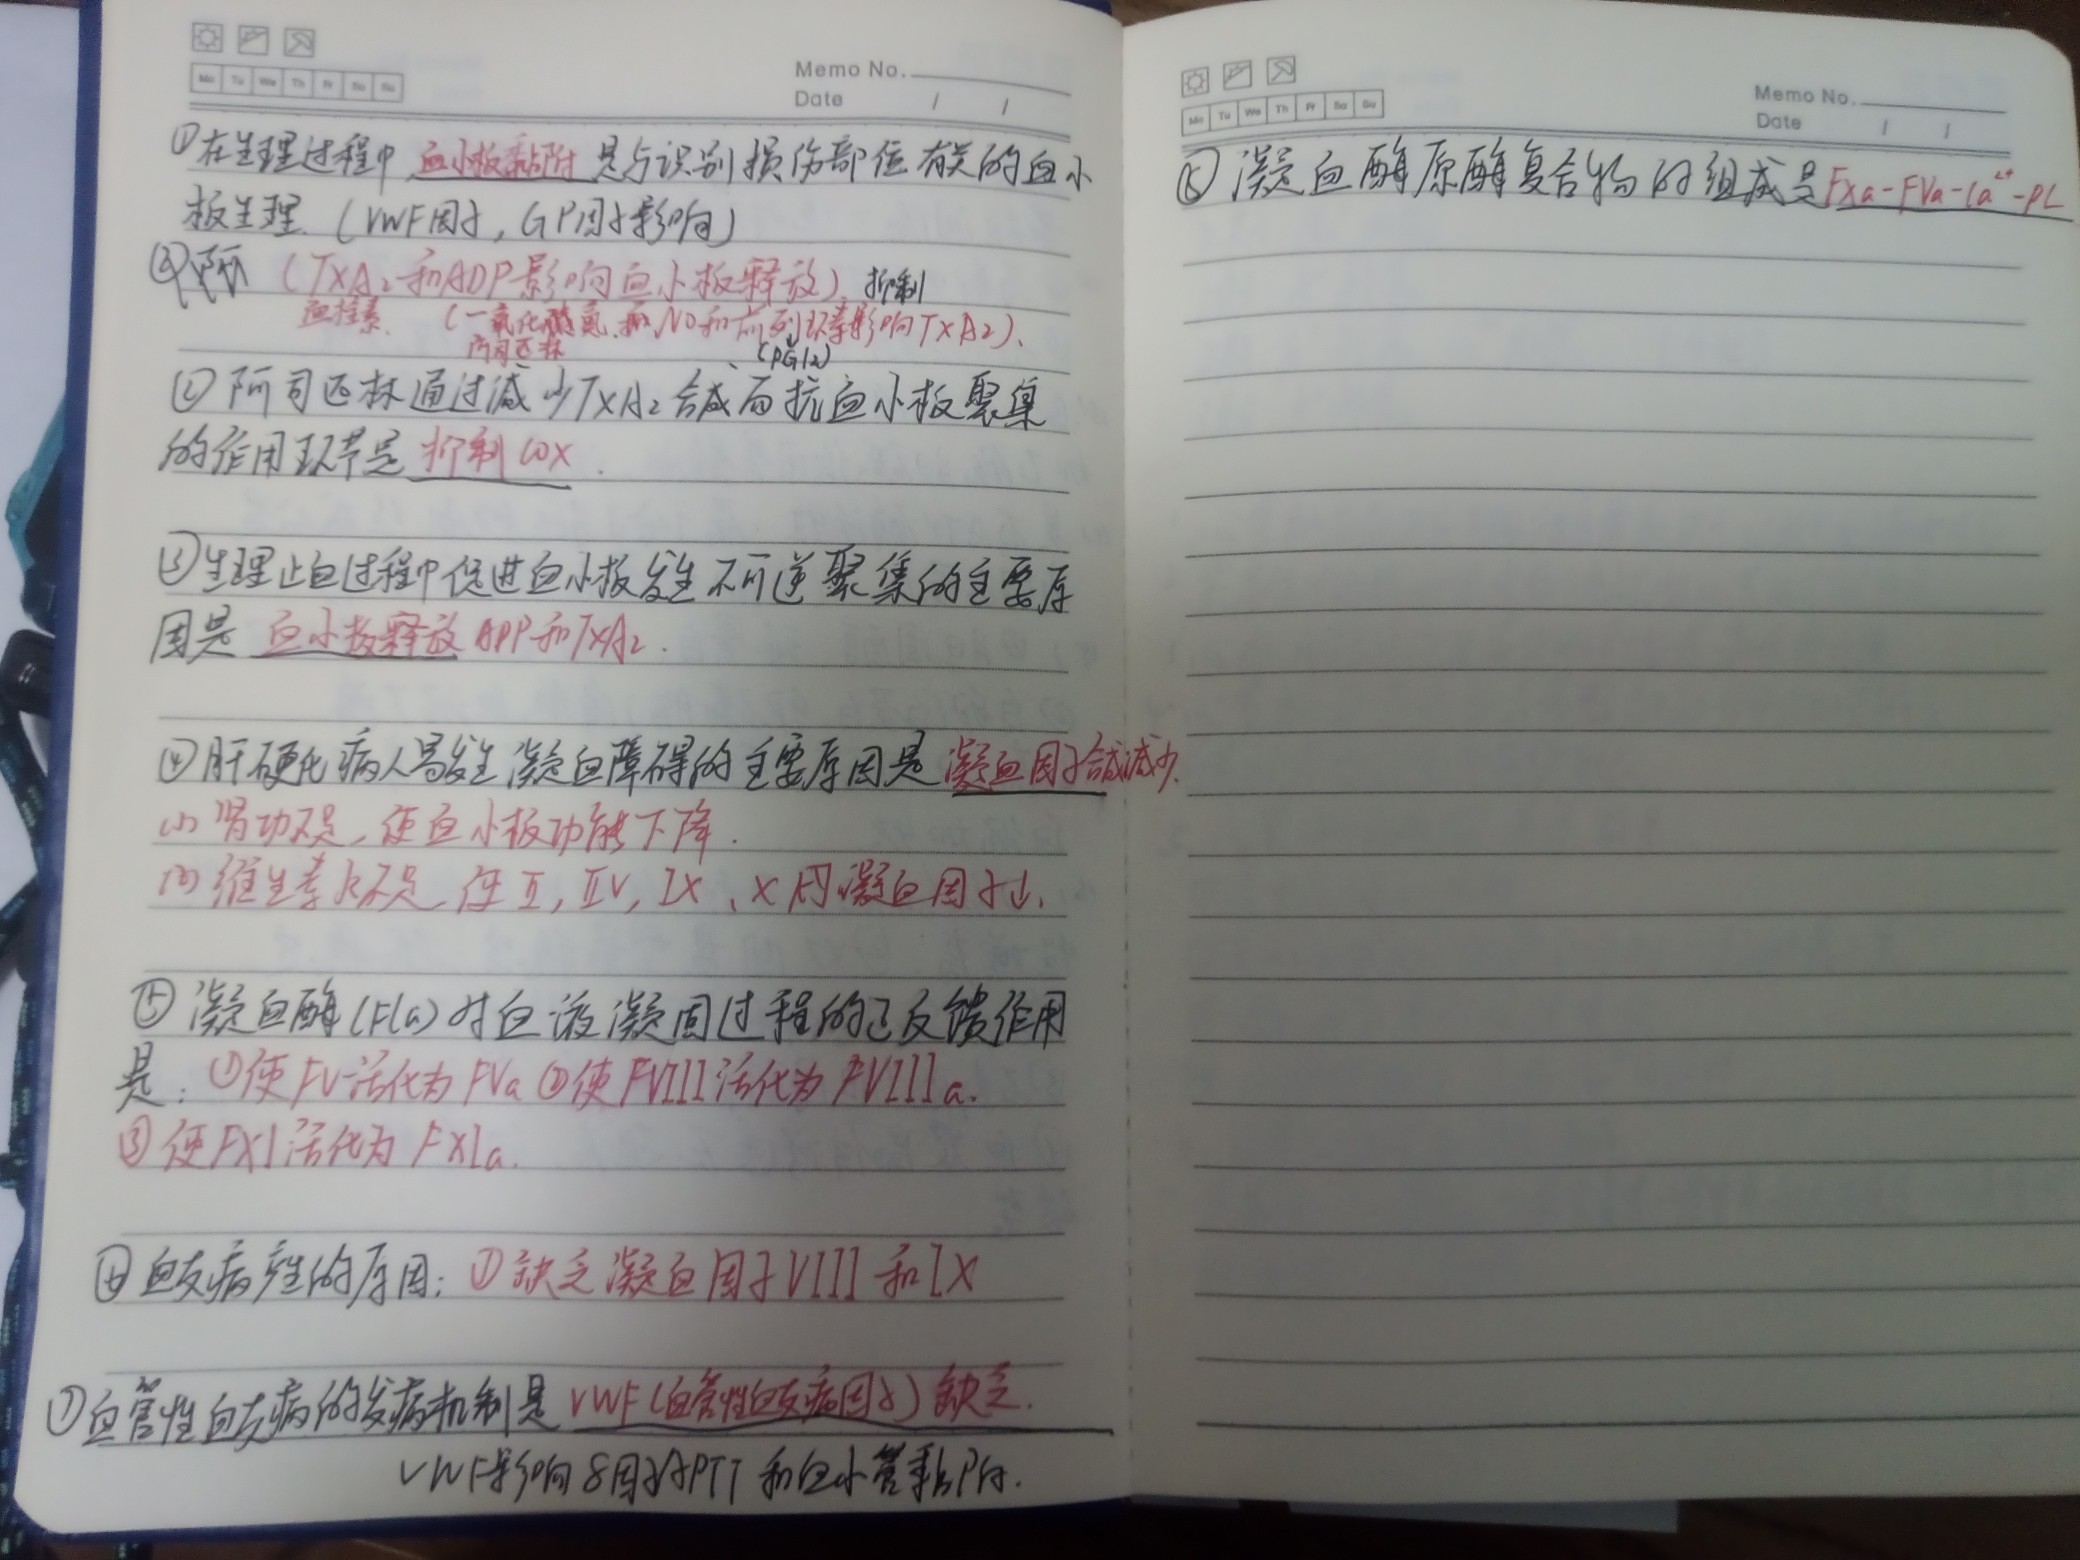 Mo Tu We Th Fr Sa Su
Memo No.
Date / /
①在生理过程中血小板黏附是与识别损伤部位有关的血小
板生理.(VWF因子,GP因子影响)
(TXA₂和ADP影响血小板释放). 抑制
(一氧化氮 NO和前列环素影响TXA2).
阿司匹林 (PGI2)
②阿司匹林通过减少TXA₂合成而抗血小板聚集
的作用环节是抑制COX.
③生理止血过程中促进血小板发生不可逆聚集的主要原
因是血小板释放ADP和TXA2.
④肝硬化病人易发生凝血障碍的主要原因是凝血因子合成减少.
(1)肾功不足,使血小板功能下降.
(2)维生素K不足,使II,IIV,IX、X 凝血因子↓.
⑤凝血酶(FIa)对血液凝固过程的正反馈作用
是:①使FV活化为FVa ②使FVIII活化为FVIIIa.
③使FXI活化为FXIa.
⑥血友病产生的原因:①缺乏凝血因子VIII和IX
⑦血管性血友病的发病机制是VWF(血管性血友病因子)缺乏.
VWF影响8因子APTT和血小管黏附.
Mo Tu We Th Fr Sa Su
Memo No.
Date / /
凝血酶原酶复合物的组成是FXa-FVa-Ca²⁺-PL